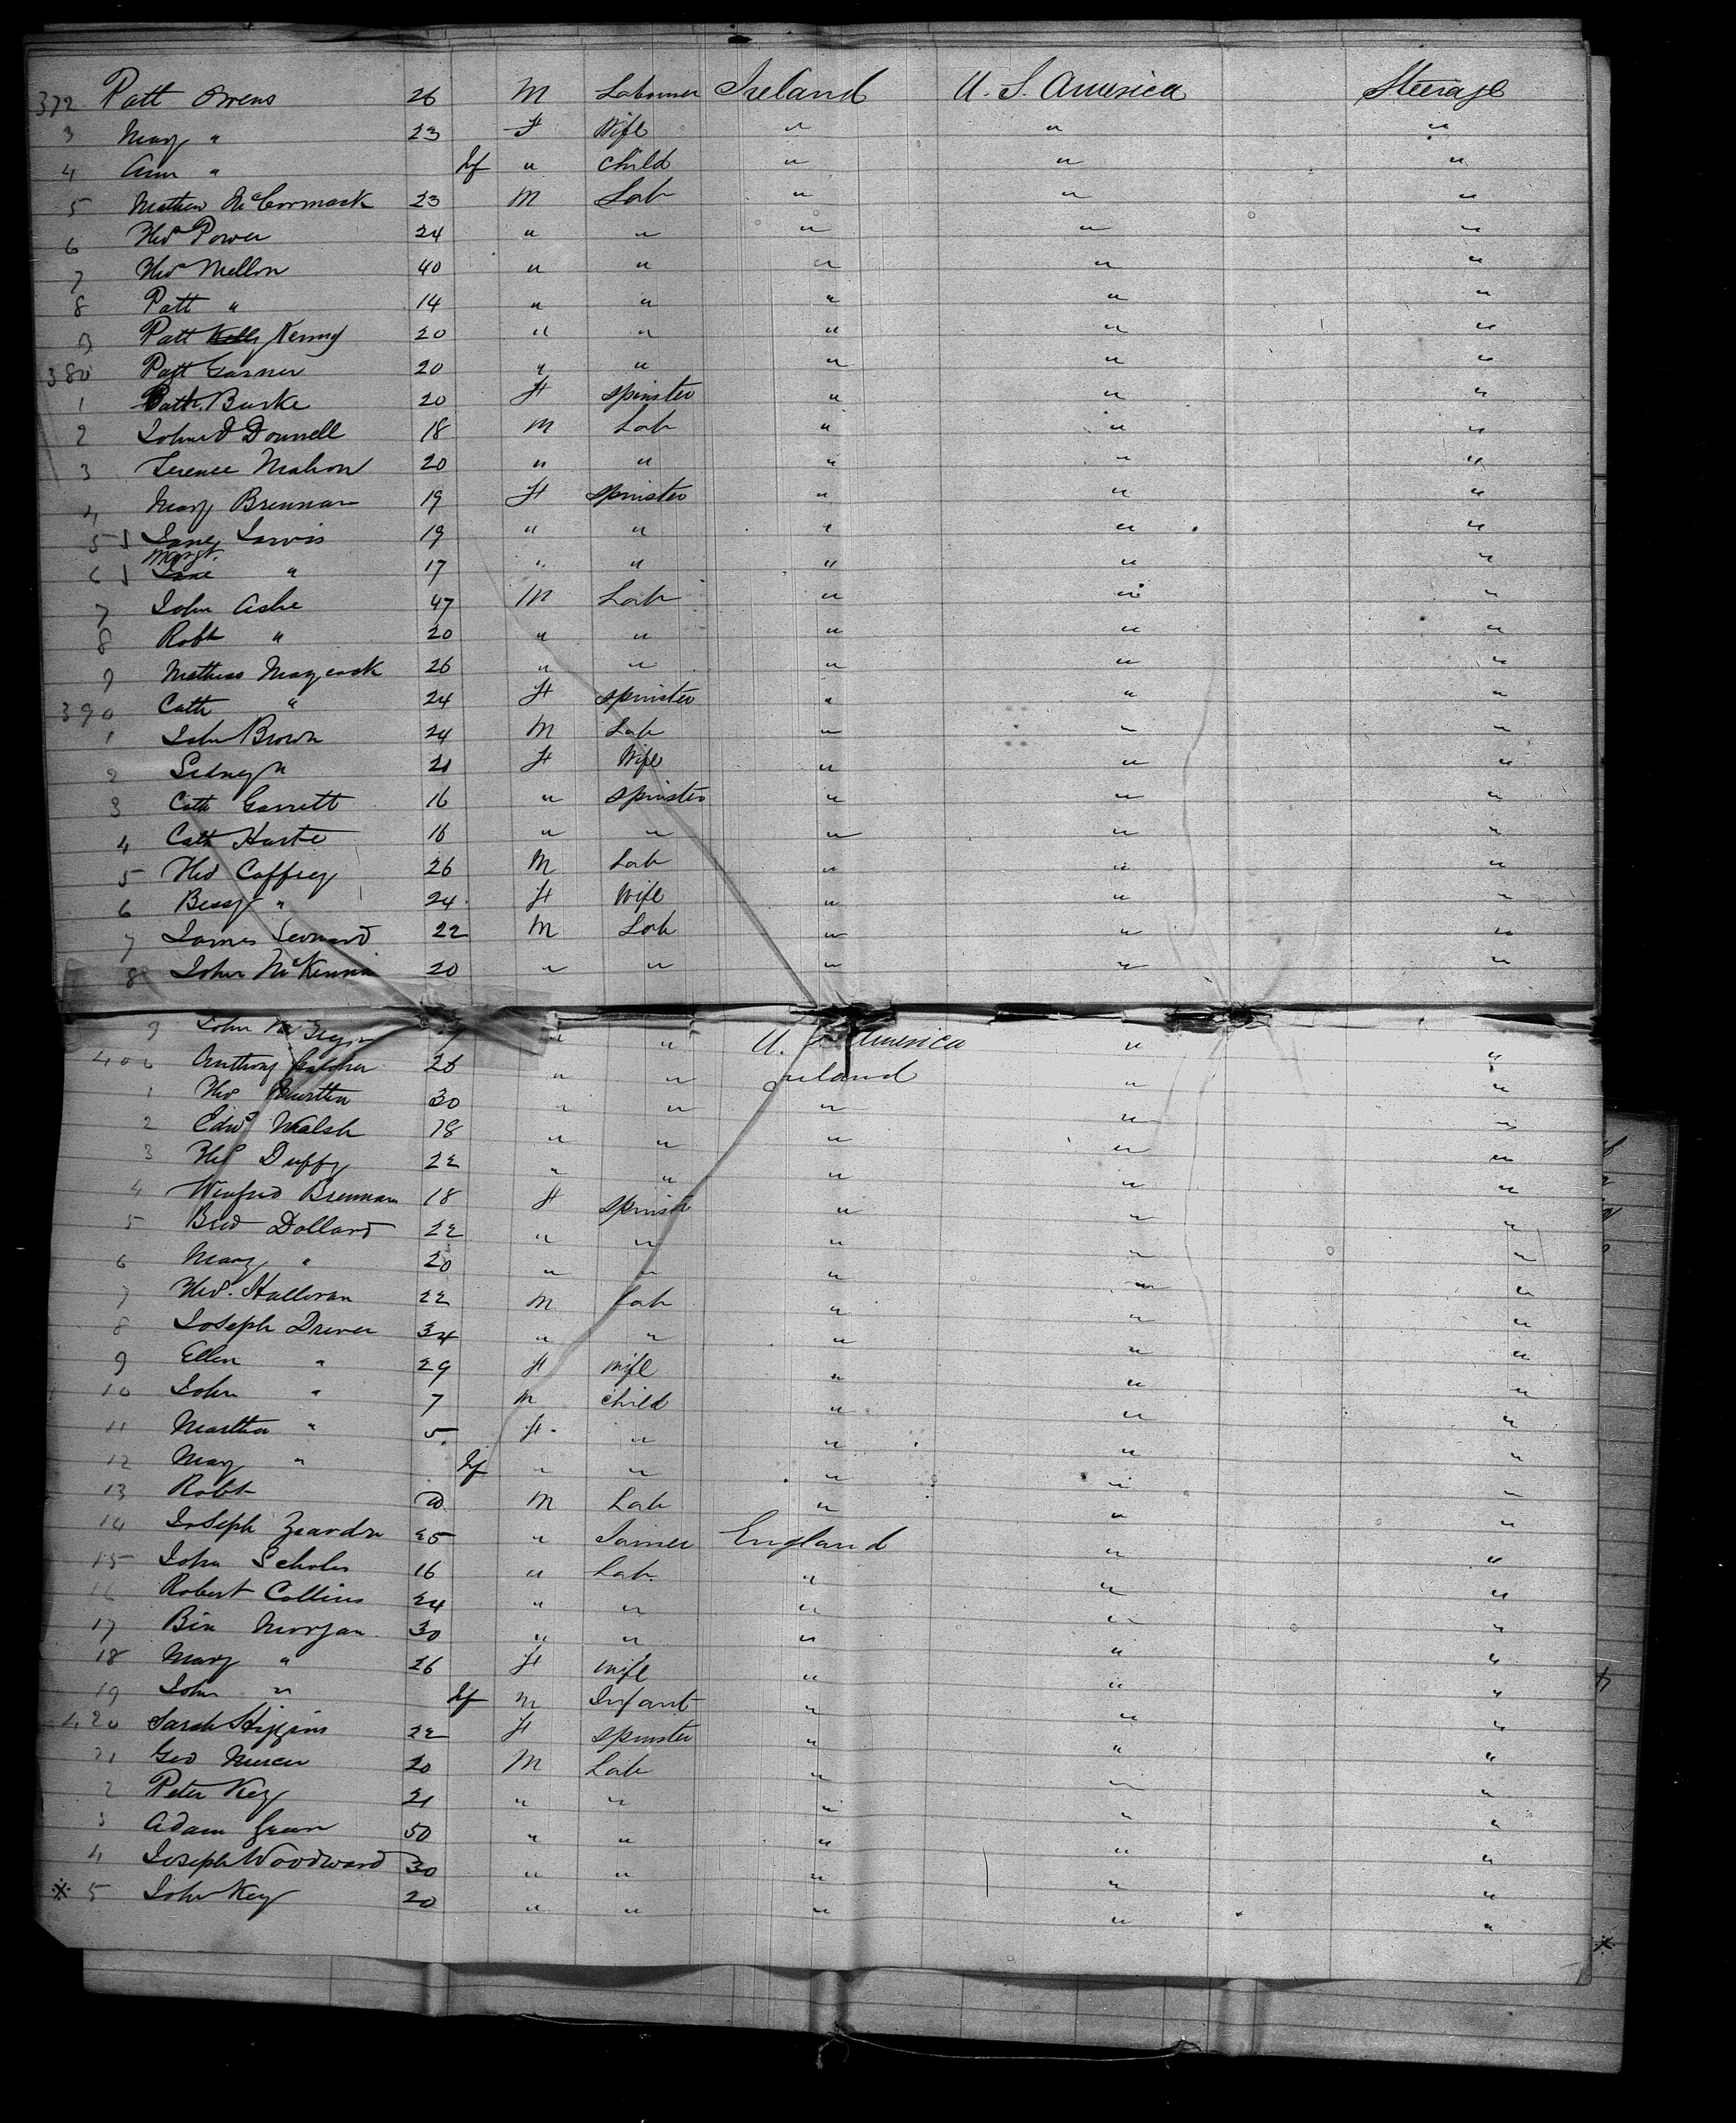 372 Patt Owens 26 M Labourer Ireland U. S. America Steerage
3 Mary " 23 F Wife " " "
4 Ann " Inf " Child " " "
5 Mathew McCormack 23 M Lab " " "
6 Thos Power 24 " " " " "
7 Thos Mellon 40 " " " " "
8 Patt " 14 " " " " "
9 Patt Kelly Kenny 20 " " " " "
380 Patt Garner 20 " " " " "
1 Cath. Burke 20 F Spinster " " "
2 John O Donnell 18 M Lab " " "
3 Terence Mahon 20 " " " " "
4 Mary Brennan 19 F Spinster " " "
5 Jane Jarvis 19 " " " " "
6 Jane Margt. " 17 " " " " "
7 John Ashe 47 M Lab " " "
8 Robt " 20 " " " " "
9 Mathias Maycock 26 " " " " "
390 Cath " 24 F Spinster " " "
1 John Brown 24 M Lab " " "
2 Sidney " 21 F Wife " " "
3 Cath Garrett 16 " Spinster " " "
4 Cath Harte 16 " " " " "
5 Thos Caffrey 26 M Lab " " "
6 Bessy " 24 F Wife " " "
7 James Leonard 22 M Lab " " "
8 John McKenna 20 " " " " "
9 John " " U. S. America " "
400 Anthony 26 " " Ireland " "
1 Thos 30 " " " " "
2 Edwd Walsh 18 " " " " "
3 Thos Duffy 22 " " " " "
4 Winfred Brennan 18 F Spinster " " "
5 Brid Dollard 22 " " " " "
6 Mary " 20 " " " " "
7 Thos. Halloran 22 M Lab " " "
8 Joseph Drever 34 " " " " "
9 Ellen " 29 F Wife " " "
10 John " 7 M Child " " "
11 Martha " 5 F " " " "
12 Mary " Inf " " " " "
13 Robt M Lab " " "
14 Joseph 25 " Joiner England " "
15 John Scholes 16 " Lab " " "
16 Robert Collins 24 " " " " "
17 Ben Morgan 30 " " " " "
18 Mary " 26 F Wife " " "
19 John " Inf M Infant " " "
420 Sarah Higgins 22 F Spinster " " "
21 Geo Mercer 20 M Lab " " "
2 Peter Key 21 " " " " "
3 Adam Green 50 " " " " "
4 Joseph Woodward 30 " " " " "
5 John Key 20 " " " " "